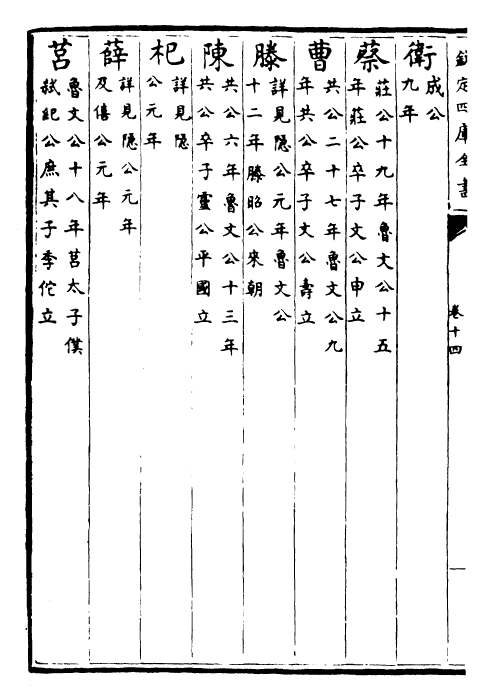 欽定四庫全書
卷十四
一
衛
成公
九年
蔡
莊公十九年魯文公十五
年莊公卒子文公申立
曹
共公二十七年魯文公九
年共公卒子文公壽立
滕
詳見隱公元年魯文公
十二年滕昭公來朝
陳
共公六年魯文公十三年
共公卒子靈公平國立
杞
詳見隱
公元年
薛
詳見隱公元年
及僖公元年
莒
魯文公十八年莒太子僕
弒紀公庶其子季佗立